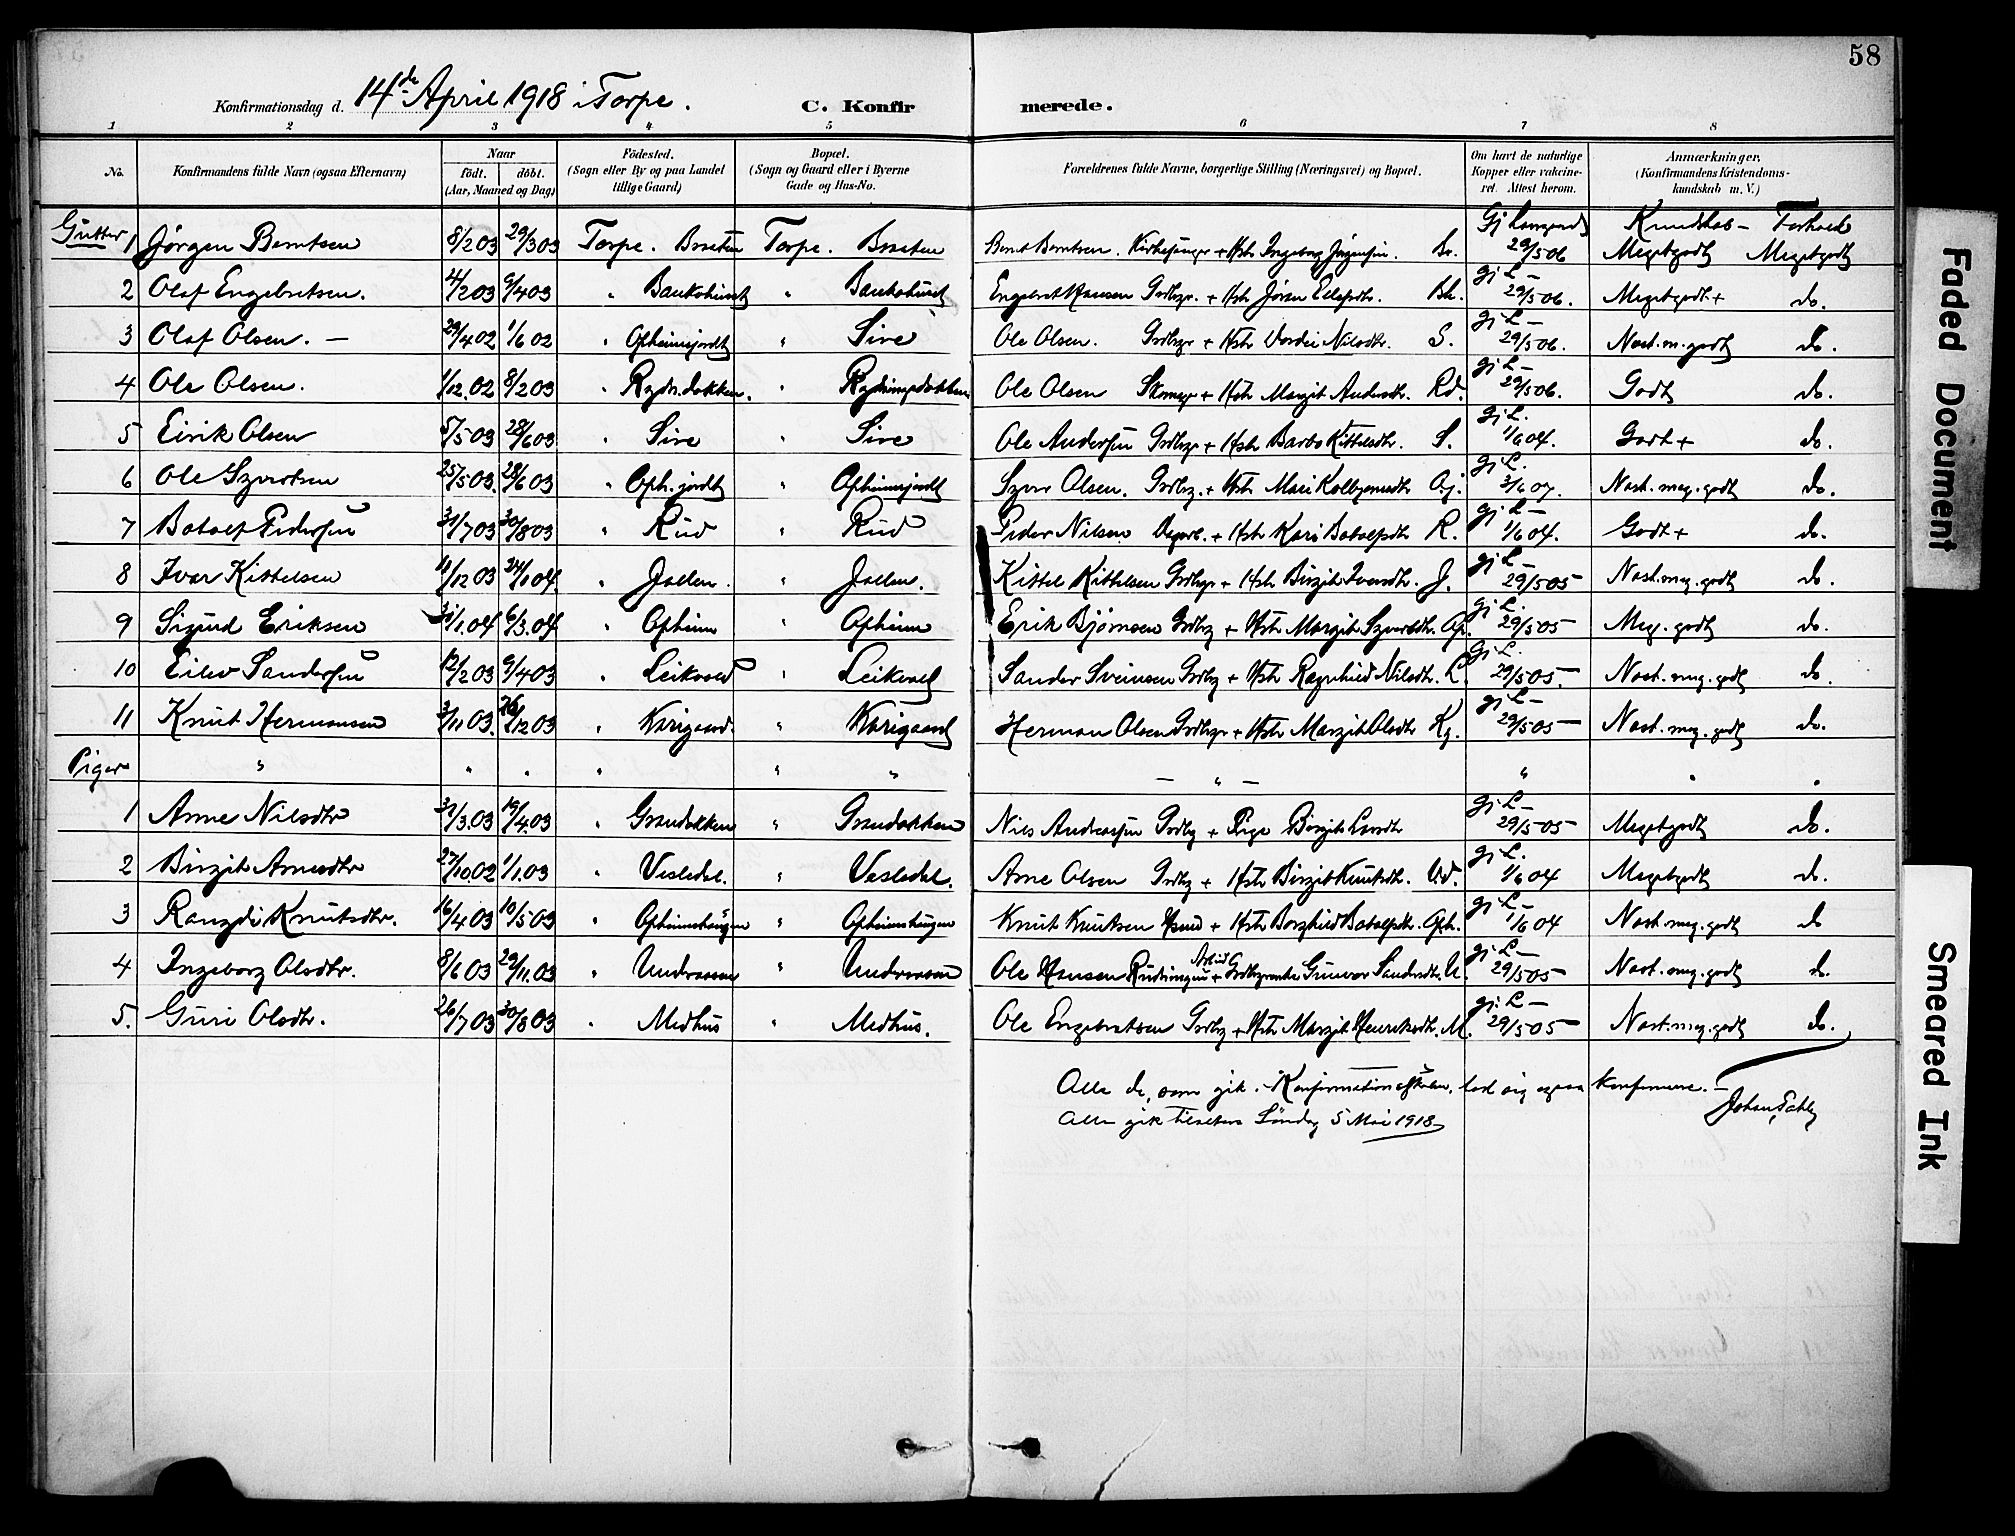 58
Konfirmationsdag d. 14de April 1918 i Torpe. C. Konfirmerede.
1 2 3 4 5 6 7 8
No. Konfirmandens fulde Navn (ogsaa Efternavn) Naar født. døbt. (Aar, Maaned og Dag) Fødested. (Sogn eller By og paa Landet tillige Gaard) Bopæl. (Sogn og Gaard eller i Byerne Gade og Hus-No. Forældrenes fulde Navne, borgerlige Stilling (Næringsvei) og Bopæl. Om havt de naturlige Kopper eller vakcineret. Attest herom. Anmærkninger. (Konfirmandens Kristendomskundskab m. V.)
Gutter Kundskab – Forhold
1 Jørgen Berntsen 8/2 03 29/3 03 Torpe. Braaten Torpe. Braaten Bernt Berntsen. Kirkesanger + Hstr Ingeborg Jørgensen. Br. 29/5 06 Megetgodt Megetgodt
2 Olaf Engebretsen. 4/2 03 6/4 03 " Baukohuset " Baukohuset Engebret Hansen Grdbr. + Hstr Jøran Eilefsdtr. Bh. gj L – 29/5 06. Megetgodt + do.
3 Olaf Olsen. – 29/4 02 1/6 02 " Opheimsjordet " Sire Ole Olsen. Grdbgr + Hstr Nilsdtr. S. gj L – 29/5 06. Næst. m. godt do.
4 Ole Olsen. 1/12.02 8/2 03 " Rydn.dokken. " Rydningsdokken Ole Olsen + Hstr Margit Andersdtr. Rd. gj L – 29/5 06. Godt do.
5 Eirik Olsen 5/5 03 28/6 03 " Sire " Sire Ole Andersen Grdbgr + Hstr Barbo Kittelsdtr. S. gj L. 1/6 04. Godt + do.
6 Ole Syvertsen 25/5 03. 28/6 03 " Oph. jordet " Opheimsjordet Syver Olsen. Grdbg. + Hstr Mari Kolbjørnsdtr Oj. gj L. Næst. meg. godt do.
7 Botolf Pedersen 31/7 03 30/8 03 " Rud " Rud Peder Nilsen + Hstr Kari Botolfsdtr R. gj L – 1/6 04. Godt + do.
8 Ivar Kittelsen 11/12 03 24/1 04. " Jallen. " Jallen. Kittel Kittelsen Grdbgr + Hstr Birgit Iversdtr. J. gj L – 29/5 05 Næst. meg. godt do.
9 Sigurd Eriksen 31/1.04 6/3.04 " Opheim " Opheim Erik Bjørnsen Grdbg + Hstr Margit Syversdtr. Op. gj L. 29/5 05 – Meg. godt do.
10 Eilev Sandersen 12/2 03 9/4 03 " Leikvold " Leikvold Sander Sveinsen Grdbg + Hstr Ragnhild Nilsdtr. L. gj L. 29/5 05. – Næst. meg. godt do.
11 Knut Hermansen 3/11 03. 26/12 03 " Korigaard. " Korigaard Herman Olsen Grdbgr + Hstr Margit Olsdtr Kg. gj L – 29/5 05 – Næst. meg. godt do.
Piger " " " " " " – " – " " "
1 Anne Nilsdtr 31/3.03 19/4.03 " Grandokken " Grandokken Nils Andreassen Grdbg + Pige Birgit gj L – 29/5 05 – Megetgodt do.
2 Birgit Arnesdtr 27/10.02 1/1.03 " Vesledal. " Vesledal. Arne Olsen Grdbg + Hstr Birgit Knutsdtr. Vd. gj L. 1/6 04 Megetgodt do.
3 Rangdi Knutsdtr. 16/4 03 10/5 03 " Opheimshaugen " Opheimshaugen Knut Knutsen Hsmd + Hstr Borghild Botolfsdtr. Oph. gj L – 1/6 04 Næst. meg. godt do
4 Ingeborg Olsdtr. 8/6 03 29/11.03 " Underaasen " Underaasen Ole Hansen Rudningen + Grdbgrenke Gunvor Sandersdtr. U. gj L – 29/5 05 – Næst. meg. godt do.
5. Guri Olsdtr. 26/7 03 30/8 03 " Medhus " Medhus. Ole Engebretsen Grdbg + Hstr Margit Henriksdtr. M. gj. L – 29/5 05 – Næst. meg. godt do.
Alle de, som gik i Konfirmationsskolen, lod sig ogsaa konfirmere. –
Alle gik tilalters Søndag 5 Mai 1918
Faded Document
Smeared Ink